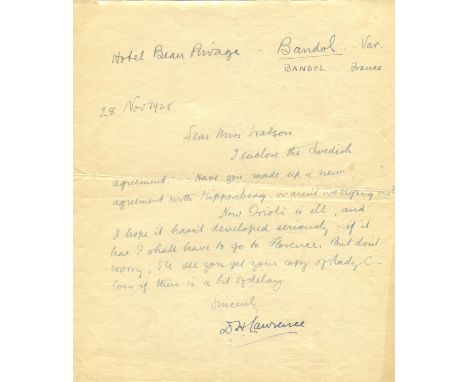 Hotel Beau Rivage . Bandol. Var.
BANDOL France
28 Nov 1928
Dear Miss Watson
I enclose the Swedish
agreement. - Have you made up a new
agreement with Kippenberg, or aren't we
Now Orioli is ill, and
I hope it hasn't developed seriously - if it
has I shall have to go to Florence. But don't
worry, I'll see you get your copy of Lady C -
Even if there is a bit of delay
Sincerely
D H Lawrence